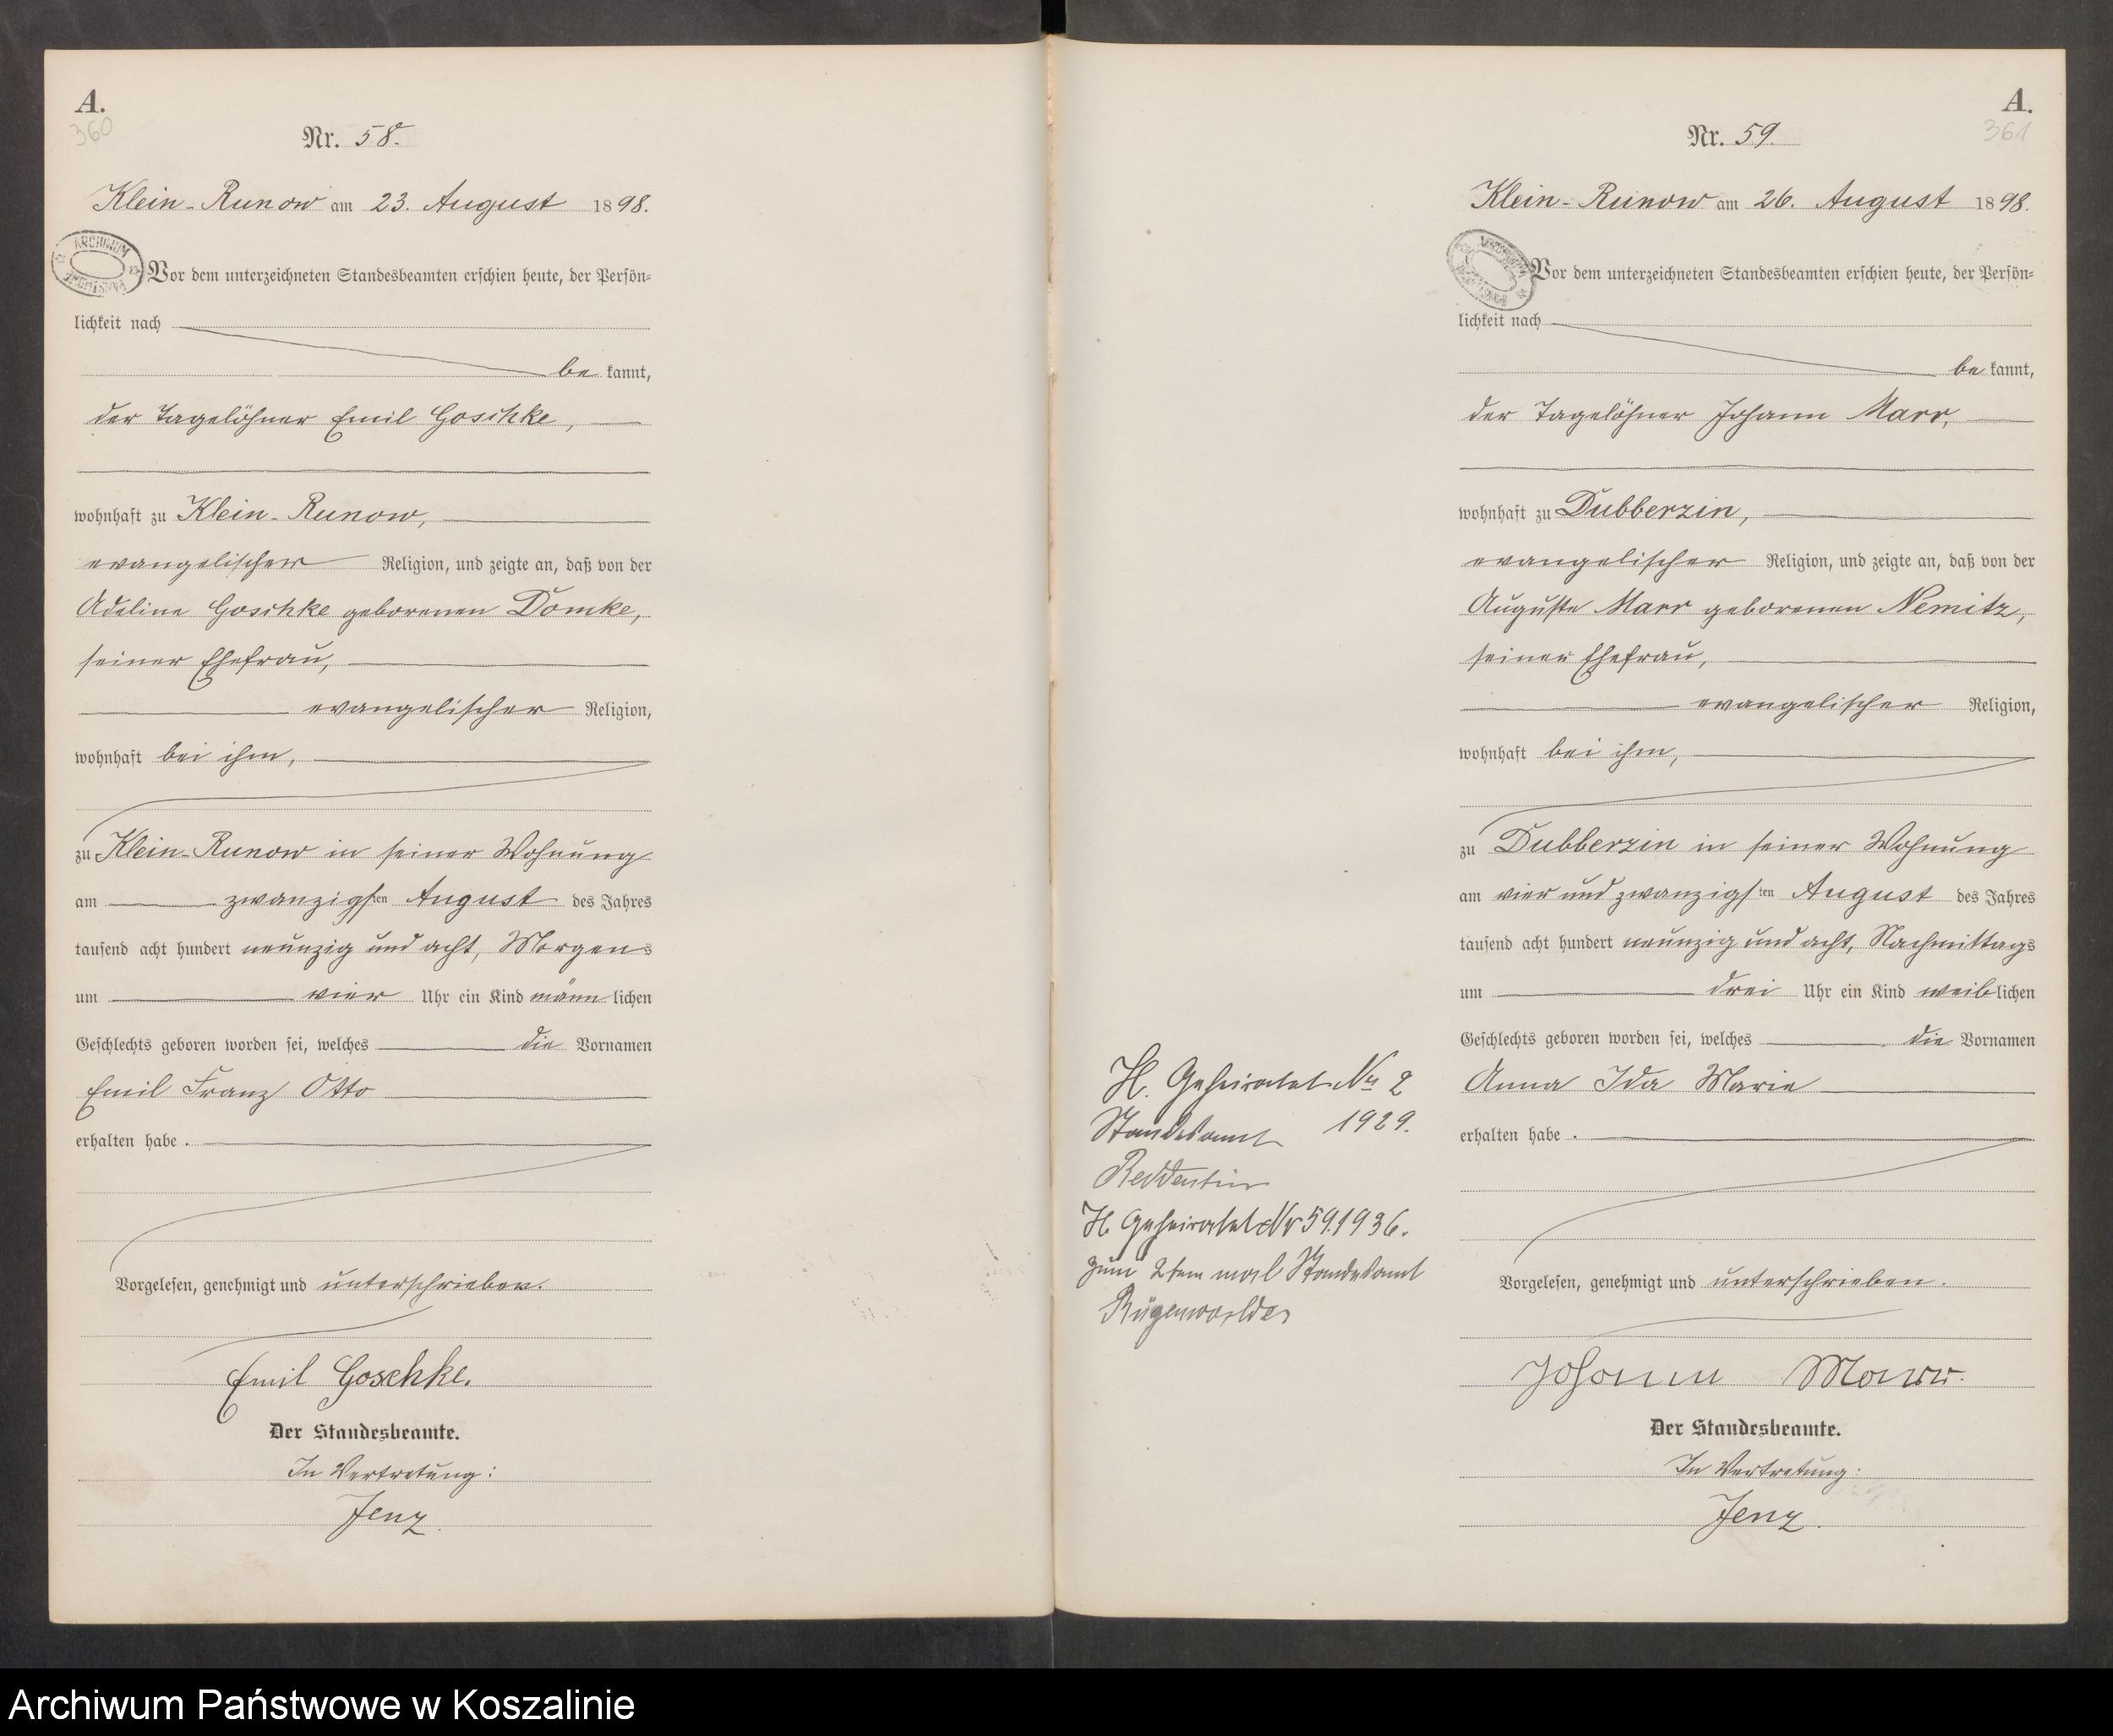 A.
360
Nr. 58.
Klein-Runow am 23. August 1898.
ARCHIWUM
Vor dem unterzeichneten Standesbeamten erschien heute, der Persön=
lichkeit nach
be kannt,
der Tagelöhner Emil Goschke,
wohnhaft zu Klein-Runow,
evangelischer Religion, und zeigte an, daß von der
Adeline Goschke geborenen Domke,
seiner Ehefrau,
evangelischer Religion,
wohnhaft bei ihm,
zu Klein-Runow in seiner Wohnung
am zwanzigsten August des Jahres
tausend acht hundert neunzig und acht, Morgens
um vier Uhr ein Kind männlichen
Geschlechts geboren worden sei, welches die Vornamen
Emil Franz Otto
erhalten habe.
Vorgelesen, genehmigt und unterschrieben.
Emil Goschke.
Der Standesbeamte.
In Vertretung:
Jenz.
A.
361
Nr. 59.
Klein-Runow am 26. August 1898.
Vor dem unterzeichneten Standesbeamten erschien heute, der Persön=
lichkeit nach
be kannt,
der Tagelöhner Johann Marr,
wohnhaft zu Dubberzin,
evangelischer Religion, und zeigte an, daß von der
Auguste Marr geborenen Nemitz,
seiner Ehefrau,
evangelischer Religion,
wohnhaft bei ihm,
zu Dubberzin in seiner Wohnung
am vier und zwanzigsten August des Jahres
tausend acht hundert neunzig und acht, Nachmittags
um drei Uhr ein Kind weiblichen
Geschlechts geboren worden sei, welches die Vornamen
Anna Ida Marie
erhalten habe.
Vorgelesen, genehmigt und unterschrieben.
Johann Marr.
Der Standesbeamte.
In Vertretung:
Jenz.
H. Geheiratet Nr 2
Standesamt 1929.
Reddentin
H. Geheiratet Nr 59.1936.
zum 2tem mal Standesamt
Rügenwalde
Archiwum Państwowe w Koszalinie